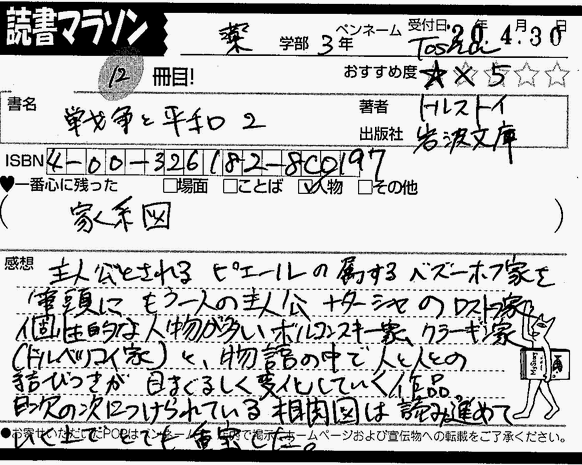 読書マラソン
薬 学部 3年
ペンネーム Toshi
受付日 '20年 4月30日
12 冊目!
おすすめ度 ★ × 5 ☆ ☆
書名 戦争と平和 2
著者 トルストイ
出版社 岩波文庫
ISBN 4-00-326182-8 C0197
♥一番心に残った □場面 □ことば ☑人物 □その他
( 家系図 )
感想 主人公とされるピエールの属するベズーホフ家を
筆頭に もう一人の主人公 ナターシャのロストフ家
個性的な人物が多いボルコンスキー家、クラーギン家
(ドルベツコイ家)と、物語の中で人と人との
結びつきが目まぐるしく変化していく作品。
目次の次につけられている相関図は読み進めて
いく上でとても重宝した。
●お寄せいただいたPOPは で掲示 ホームページおよび宣伝物への転載をご了承ください。